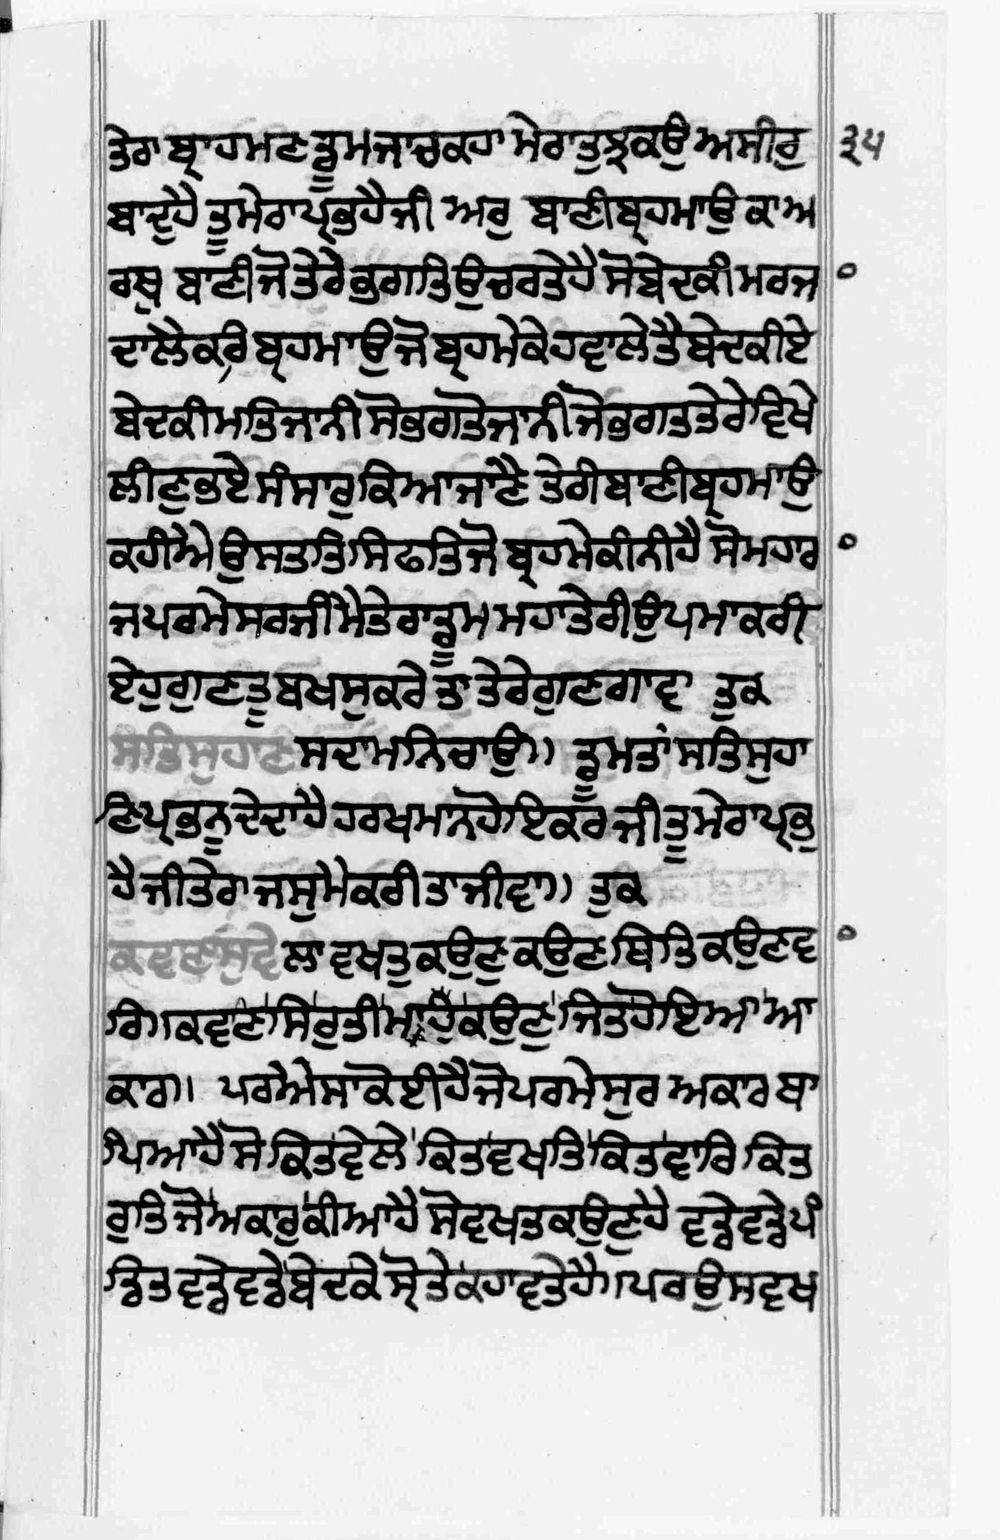 ਤੇਰਾ ਬ੍ਰਾਹਮਣ ਤੂ ਮਜਾਚਕਹਾ ਮੇਰਾ ਤੁਝਕਉ ਅਸੀਰੁ ੩੫
ਬਾਦੁਹੈ ਤੂ ਮੇਰਾ ਪ੍ਰਭੁ ਹੈ ਜੀ ਅਰੁ ਬਾਣੀ ਬ੍ਰਹਮਾਉ ਕਾ ਅ
ਰਥੁ ਬਾਣੀ ਜੋ ਤੇਰੇ ਭਗਤਿ ਉਚਰਤੇ ਹੈ ਸੋ ਬੇਦ ਕੀ ਮਰਜ
ਦਾ ਲੈ ਕਰਿ ਬ੍ਰਹਮਾਉ ਜੋ ਬ੍ਰਹਮੇ ਕੇ ਹਵਾਲੇ ਤੈ ਬੇਦ ਕੀਏ
ਬੇਦ ਕੀ ਮਤਿ ਜਾਨੀ ਸੋ ਭਗਤੋ ਜਾਨੀ ਜੋ ਭਗਤ ਤੇਰੇ ਵਿਖੇ
ਲੀਣੁ ਭਏ ਸੰਸਾਰੁ ਕਿਆ ਜਾਣੈ ਤੇਰੀ ਬਾਣੀ ਬ੍ਰਹਮਾਉ
ਕਹੀਐ ਉਸਤਤਿ ਸਿਫਤਿ ਜੋ ਬ੍ਰਹਮੇ ਕੀਨੀ ਹੈ ਸੋ ਮਹਾਰ
ਜ ਪਰਮੇਸਰ ਜੀ ਮੈ ਤੇਰਾ ਡੂਮ ਮਹਾ ਤੇਰੀ ਉਪਮਾ ਕਰੀ
ਏਹੁ ਗੁਣ ਤੂ ਬਖਸੁ ਕਰੇ ਤਾ ਤੇਰੇ ਗੁਣ ਗਾਵਾ ਤੁਕ
ਸਤਿ ਸੁਹਾਣ ਸਦਾ ਮਨਿ ਚਾਉ॥ ਡੂਮ ਤਾਂ ਸਤਿ ਸੁਹਾ
ਣਿ ਪ੍ਰਭ ਨੂ ਦੇਦਾ ਹੈ ਹਰਖਮਾਨ ਹੋਇ ਕਰ ਜੀ ਤੂ ਮੇਰਾ ਪ੍ਰਭੁ
ਹੈ ਜੀ ਤੇਰਾ ਜਸੁ ਮੈ ਕਰੀ ਤਾ ਜੀਵਾ॥ ਤੁਕ
ਕਵਣ ਸੁ ਵੇਲਾ ਵਖਤੁ ਕਉਣੁ ਕਉਣ ਥਿਤਿ ਕਉਣ ਵਾ
ਰਿ॥ ਕਵਣ ਸਿ ਰੁਤੀ ਮਾਹੁ ਕਉਣੁ ਜਿਤੁ ਹੋਇਆ ਆ
ਕਾਰੁ॥ ਪਰ ਐਸਾ ਕੋਈ ਹੈ ਜੋ ਪਰਮੇਸੁਰ ਅਕਾਰ ਥਾ
ਪਿਆ ਹੈ ਸੋ ਕਿਤ ਵੇਲੇ ਕਿਤ ਵਖਤਿ ਕਿਤ ਵਾਰਿ ਕਿਤ
ਰੁਤਿ ਜੋ ਅਕਾਰੁ ਕੀਆ ਹੈ ਸੋ ਵਖਤ ਕਉਣੁ ਹੈ ਵਡੇ ਵਡੇ ਪੰ
ਡਿਤ ਵਡੇ ਵਡੇ ਬੇਦ ਕੇ ਸ੍ਰੋਤੇ ਕਹਾਵਤੇ ਹੈ। ਪਰ ਉਸ ਵਖ